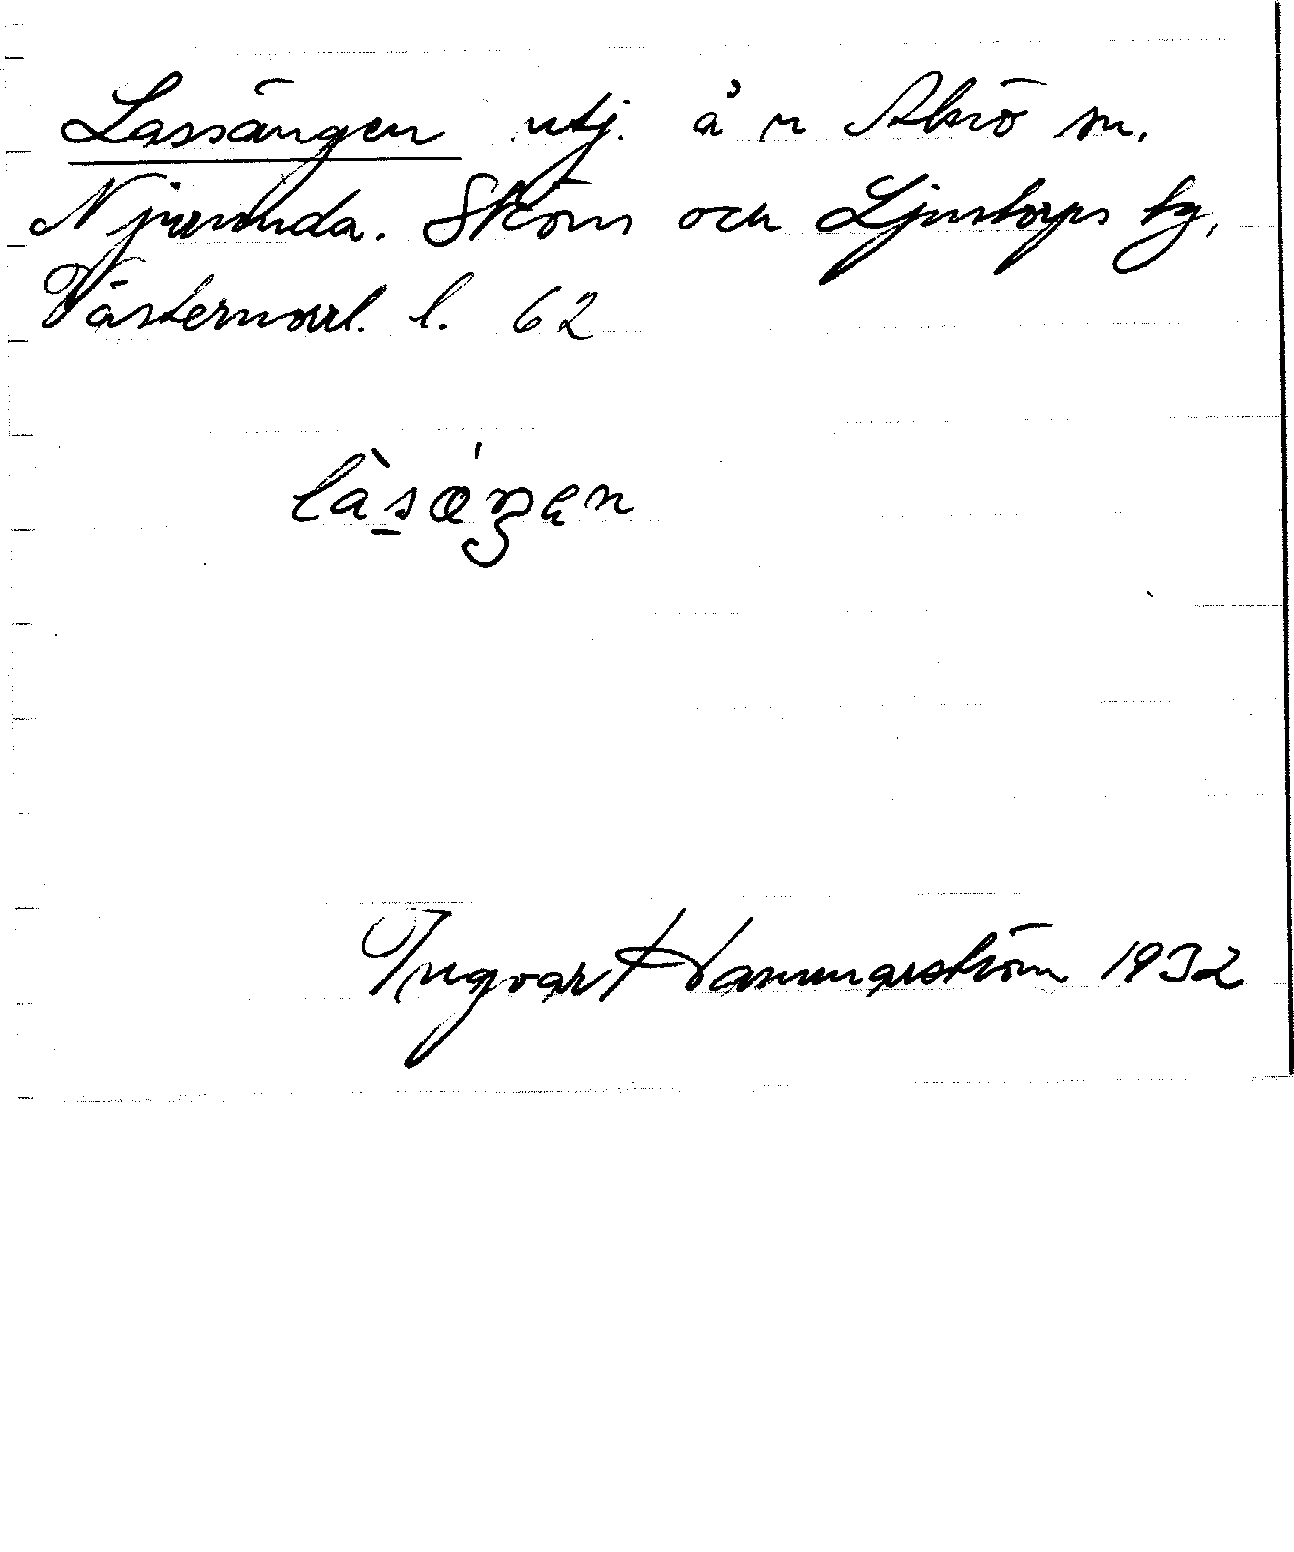 Lassängen utj. å n Alnö sn.
Njurunda. Sköns och Ljustorps tg,
Västernorrl. l. 62
làsǽŋen
Ingvar Hammarström 1932